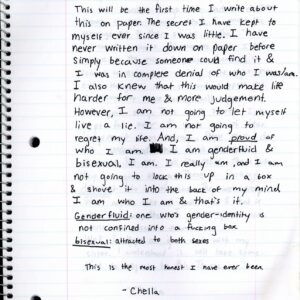 This will be the first time I write about
this on paper. The secret I have kept to
myself ever since I was little. I have
never written it down on paper before
simply because someone could find it &
I was in complete denial of who I was/am.
I also knew that this would make life
harder for me & more judgement.
However, I am not going to let myself
live a lie. I am not going to
regret my life. And, I am proud of
who I am. I am genderfluid &
bisexual. I am. I really am, and I am
not going to lock this up in a box
& shove it into the back of my mind
I am who I am & that's it.
Genderfluid: one who's gender-identity is
not confined into a fucking box
bisexual: attracted to both sexes
This is the most honest I have ever been
- Chella